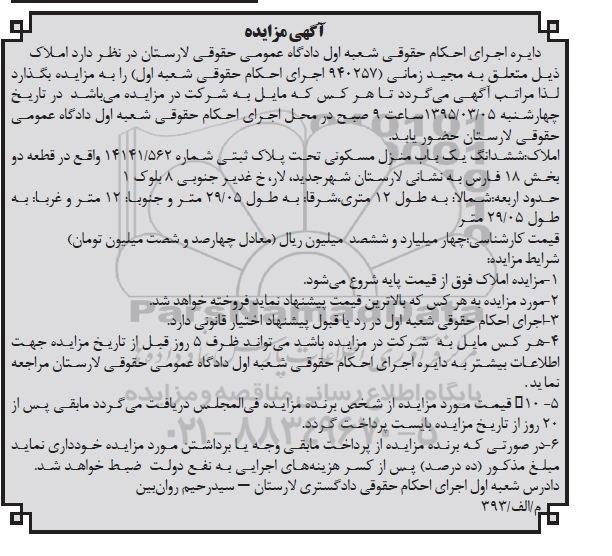 آگهی مزایده
دایره اجرای احکام حقوقی شعبه اول دادگاه عمومی حقوقی لارستان در نظر دارد املاک
ذیل متعلق به مجید زمانی (۹۴۰۲۵۷ اجرای احکام حقوقی شعبه اول) را به مزایده بگذارد
لذا مراتب آگهی می‌گردد تا هر کس که مایل به شرکت در مزایده می‌باشد در تاریخ
چهارشنبه ۱۳۹۵/۰۳/۰۵ساعت ۹ صبح در محل اجرای احکام حقوقی شعبه اول دادگاه عمومی
حقوقی لارستان حضور یابد.
املاک:ششدانگ یک باب منزل مسکونی تحت پلاک ثبتی شماره ۱۴۱۴۱/۵۶۲ واقع در قطعه دو
بخش ۱۸ فارس به نشانی لارستان شهرجدید، لار، خ غدیر جنوبی ۸ بلوک ۱
حدود اربعه:شمالا: به طول ۱۲ متری،شرقا: به طول ۲۹/۰۵ متر و جنوبا: ۱۲ متر و غربا: به
طول ۲۹/۰۵ متر
قیمت کارشناسی:چهار میلیارد و ششصد میلیون ریال (معادل چهارصد و شصت میلیون تومان)
شرایط مزایده:
۱-مزایده املاک فوق از قیمت پایه شروع می‌شود.
۲-مورد مزایده به هر کس که بالاترین قیمت پیشنهاد نماید فروخته خواهد شد.
۳-اجرای احکام حقوقی شعبه اول در رد یا قبول پیشنهاد اختیار قانونی دارد.
۴-هر کس مایل به شرکت در مزایده باشد می‌تواند ظرف ۵ روز قبل از تاریخ مزایده جهت
اطلاعات بیشتر به دایره اجرای احکام حقوقی شعبه اول دادگاه عمومی حقوقی لارستان مراجعه
نماید.
۵- ۱۰٪ قیمت مورد مزایده از شخص برنده مزایده فی‌المجلس دریافت می‌گردد مابقی پس از
۲۰ روز از تاریخ مزایده بایست پرداخت گردد.
۶-در صورتی که برنده مزایده از پرداخت مابقی وجه یا برداشتن مورد مزایده خودداری نماید
مبلغ مذکور (ده درصد) پس از کسر هزینه‌های اجرایی به نفع دولت ضبط خواهد شد.
دادرس شعبه اول اجرای احکام حقوقی دادگستری لارستان – سیدرحیم روان‌بین
م/الف/۳۹۳
ParsNamadData
پایگاه اطلاع رسانی مناقصه و مزایده
۰۲۱-۸۸۳۴۹۶۷۰-۵